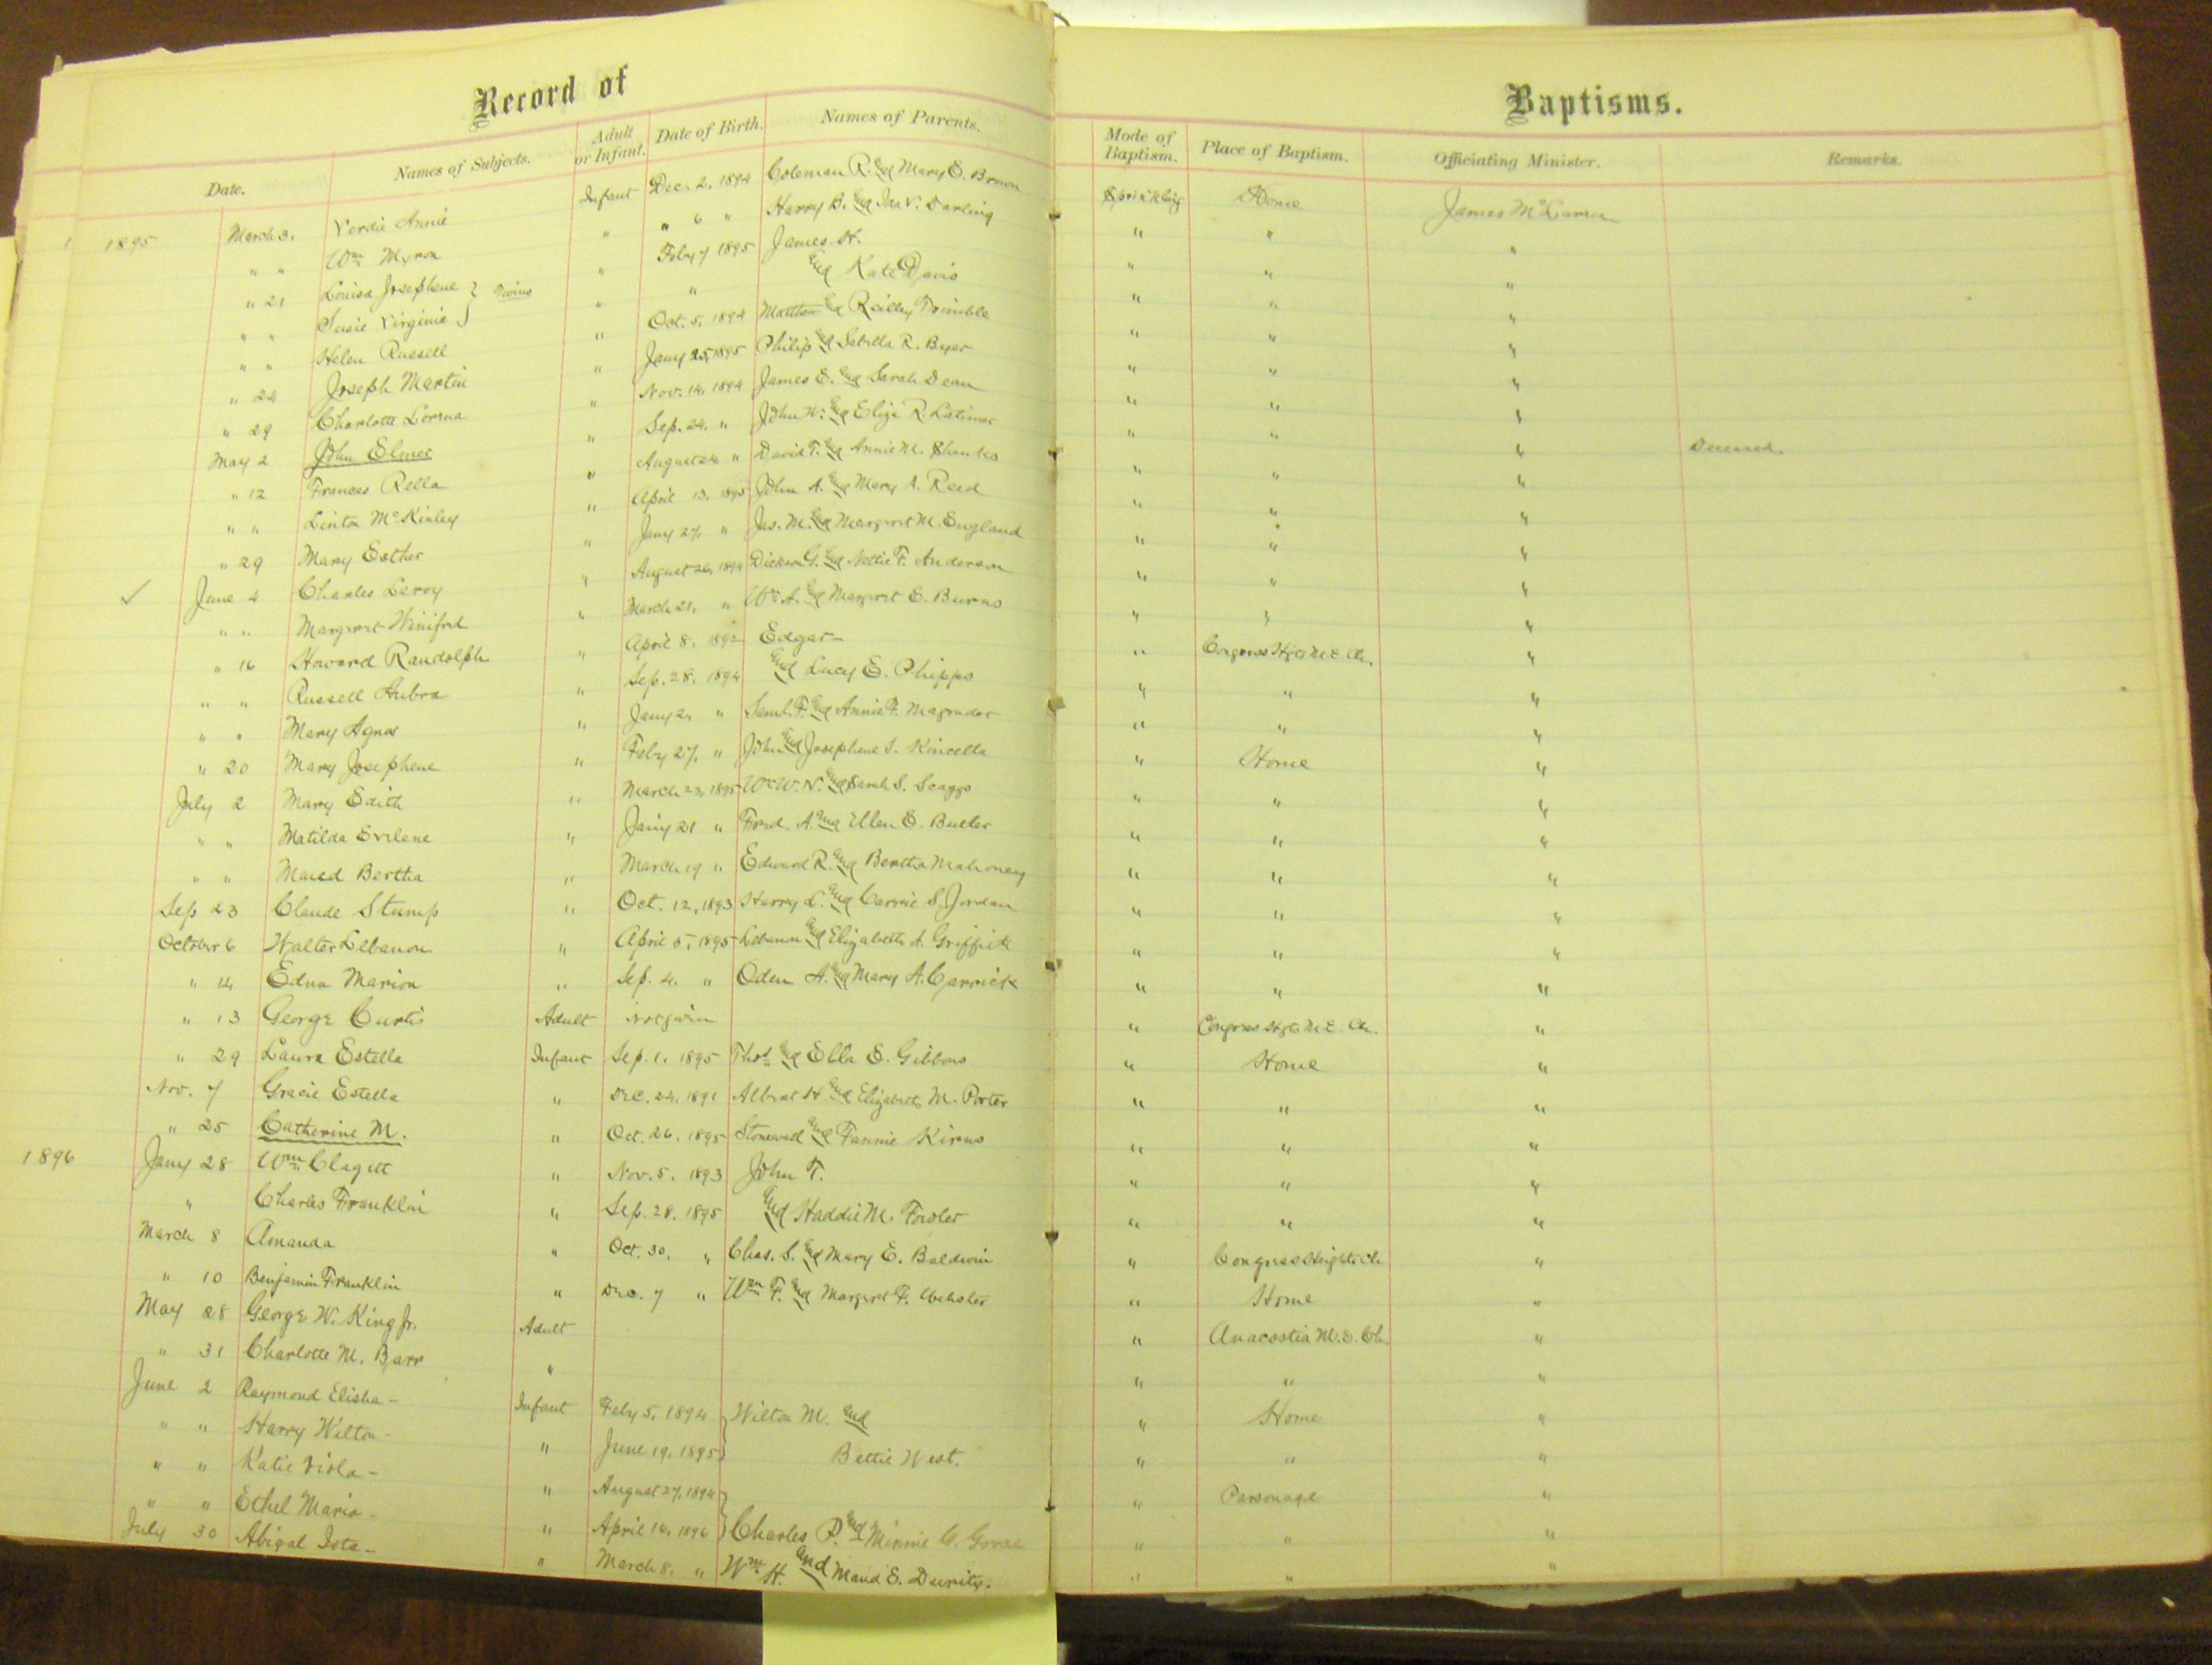 Record of Baptisms.
Date. Names of Subjects. Adult or Infant. Date of Birth. Names of Parents. Mode of Baptism. Place of Baptism. Officiating Minister. Remarks.
1 1895 March 3. Verdie Annie Infant Dec. 2, 1894 Coleman R. and Mary E. Brown Sprinkling Home James McLaren
" " Wm Myron " " 6 " Harry B. and Ida V. Darling " " "
" 21 Louisa Josephene } Twins " Feby 7 1895 James H. " " "
" " Susie Virginia } " " and Kate Davis " " "
" " Helen Russell " Oct. 5, 1894 Matthew and Reilley Trimble " " "
" 24 Joseph Martin " Jany 25, 1895 Philip and Sabilla R. Byer " " "
" 29 Charlotte Lorena " Nov. 14, 1894 James E. and Sarah Dean " " "
May 2 John Elmer " Sep. 24, " John W. and Eliza R. Latimer " " " Deceased.
" 12 Frances Rella " August 26 " David T. and Annie M. Shanks " " "
" " Linton McKinley " April 13, 1895 John A. and Mary A. Reed " " "
" 29 Mary Esther " Jany 27, " Jas. M. and Margaret M. England " " "
✓ June 4 Charles Leroy " August 26, 1894 Dickson G. and Nettie F. Anderson " " "
" " Margaret Winifred " March 21, " Wm A. and Margaret E. Burns " " "
" 16 Howard Randolph " April 8, 1892 Edgar " Congress Hgts M.E. Ch. "
" " Russell Aubra " Sep. 28, 1894 and Lucy E. Phipps " " "
" " Mary Agnes " Jany 2, " Saml. F. and Annie F. Magruder " " "
" 20 Mary Josephene " Feby 27, " John and Josephene S. Kincella " Home "
July 2 Mary Edith " March 23, 1895 Wm W. N. and Sarah S. Scaggs " " "
" " Matilda Evilene " Jany 21 " Ferd. A. and Ellen E. Butler " " "
" " Maud Bertha " March 19 " Edward R. and Bertha Mahoney " " "
Sep 23 Claude Stump " Oct. 12, 1893 Harry L. and Carrie S. Jordan " " "
October 6 Walter Lebanon " April 5, 1895 Lebanon and Elizabeth A. Griffith " " "
" 14 Edna Marion " Sep. 4. " Oden A. and Mary A. Carrick " " "
" 13 George Curtis Adult Not given " Congress Hgts M.E. Ch. "
" 29 Laura Estella Infant Sep. 1. 1895 Thos and Ella E. Gibbons " Home "
Nov. 7 Gracie Estella " Dec. 24, 1891 Albert H and Elizabeth M. Porter " " "
" 25 Catherine M. " Oct. 26, 1895 Stonewall and Fannie Kirns " " "
1896 Jany 28 Wm Clagett " Nov. 5. 1893 John T. " " "
" Charles Franklin " Sep. 28. 1895 and Haddie M. Fowler " " "
March 8 Amanda " Oct. 30. " Chas. S. and Mary E. Baldwin " Congress Heights Ch "
" 10 Benjamin Franklin " Dec. 7 " Wm F. and Margaret F. Webster " Home "
May 28 George W. King Jr. Adult " Anacostia M.E. Ch. "
" 31 Charlotte M. Barr " " " "
June 2 Raymond Elisha - Infant Feby 5, 1894 } Wilton M. and " Home "
" " Harry Wilton - " June 19, 1895 } Bettie West. " " "
" " Katie Viola - " August 27, 1894 } " Parsonage "
" " Ethel Maria - " April 16, 1896 } Charles P. and Minnie " " "
July 30 Abigal Iota - " March 8. " Wm H. and Maud E. " " "